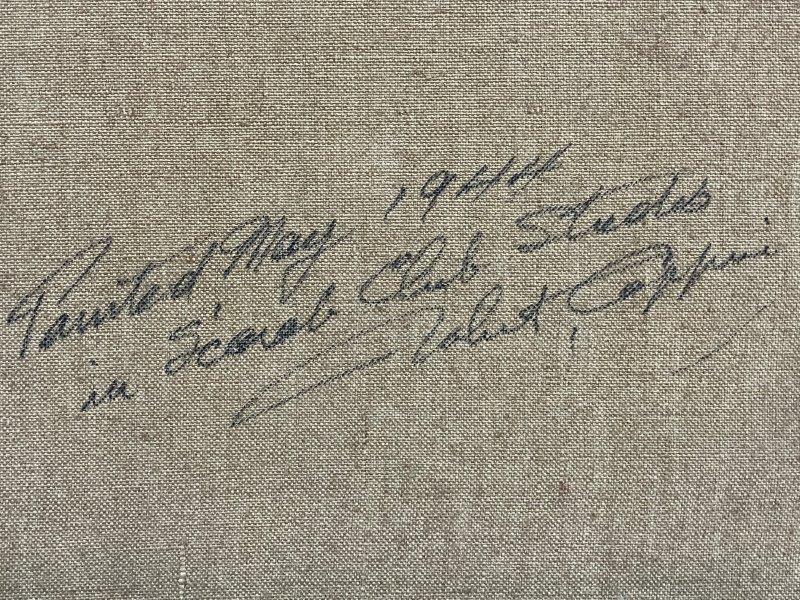 Painted May 1944
in Scarab Club Studio
Robert